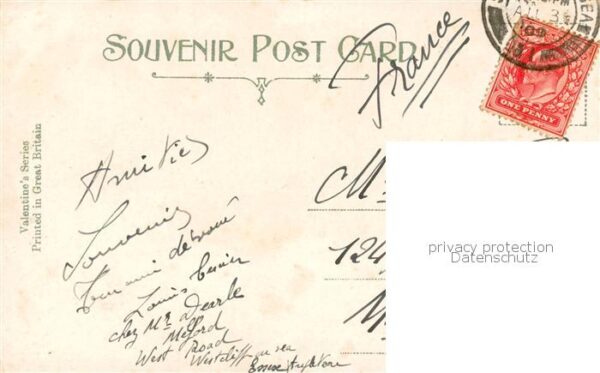 SOUVENIR POST CARD
France
ONE PENNY
Valentine's Series
Printed in Great Britain
Amitiés
Souvenir
Ton ami dévoué
Louis
chez Mr Dearle
Melford
West Road
Westcliff on sea
Essex Angleterre
M
124
M
privacy protection
Datenschutz